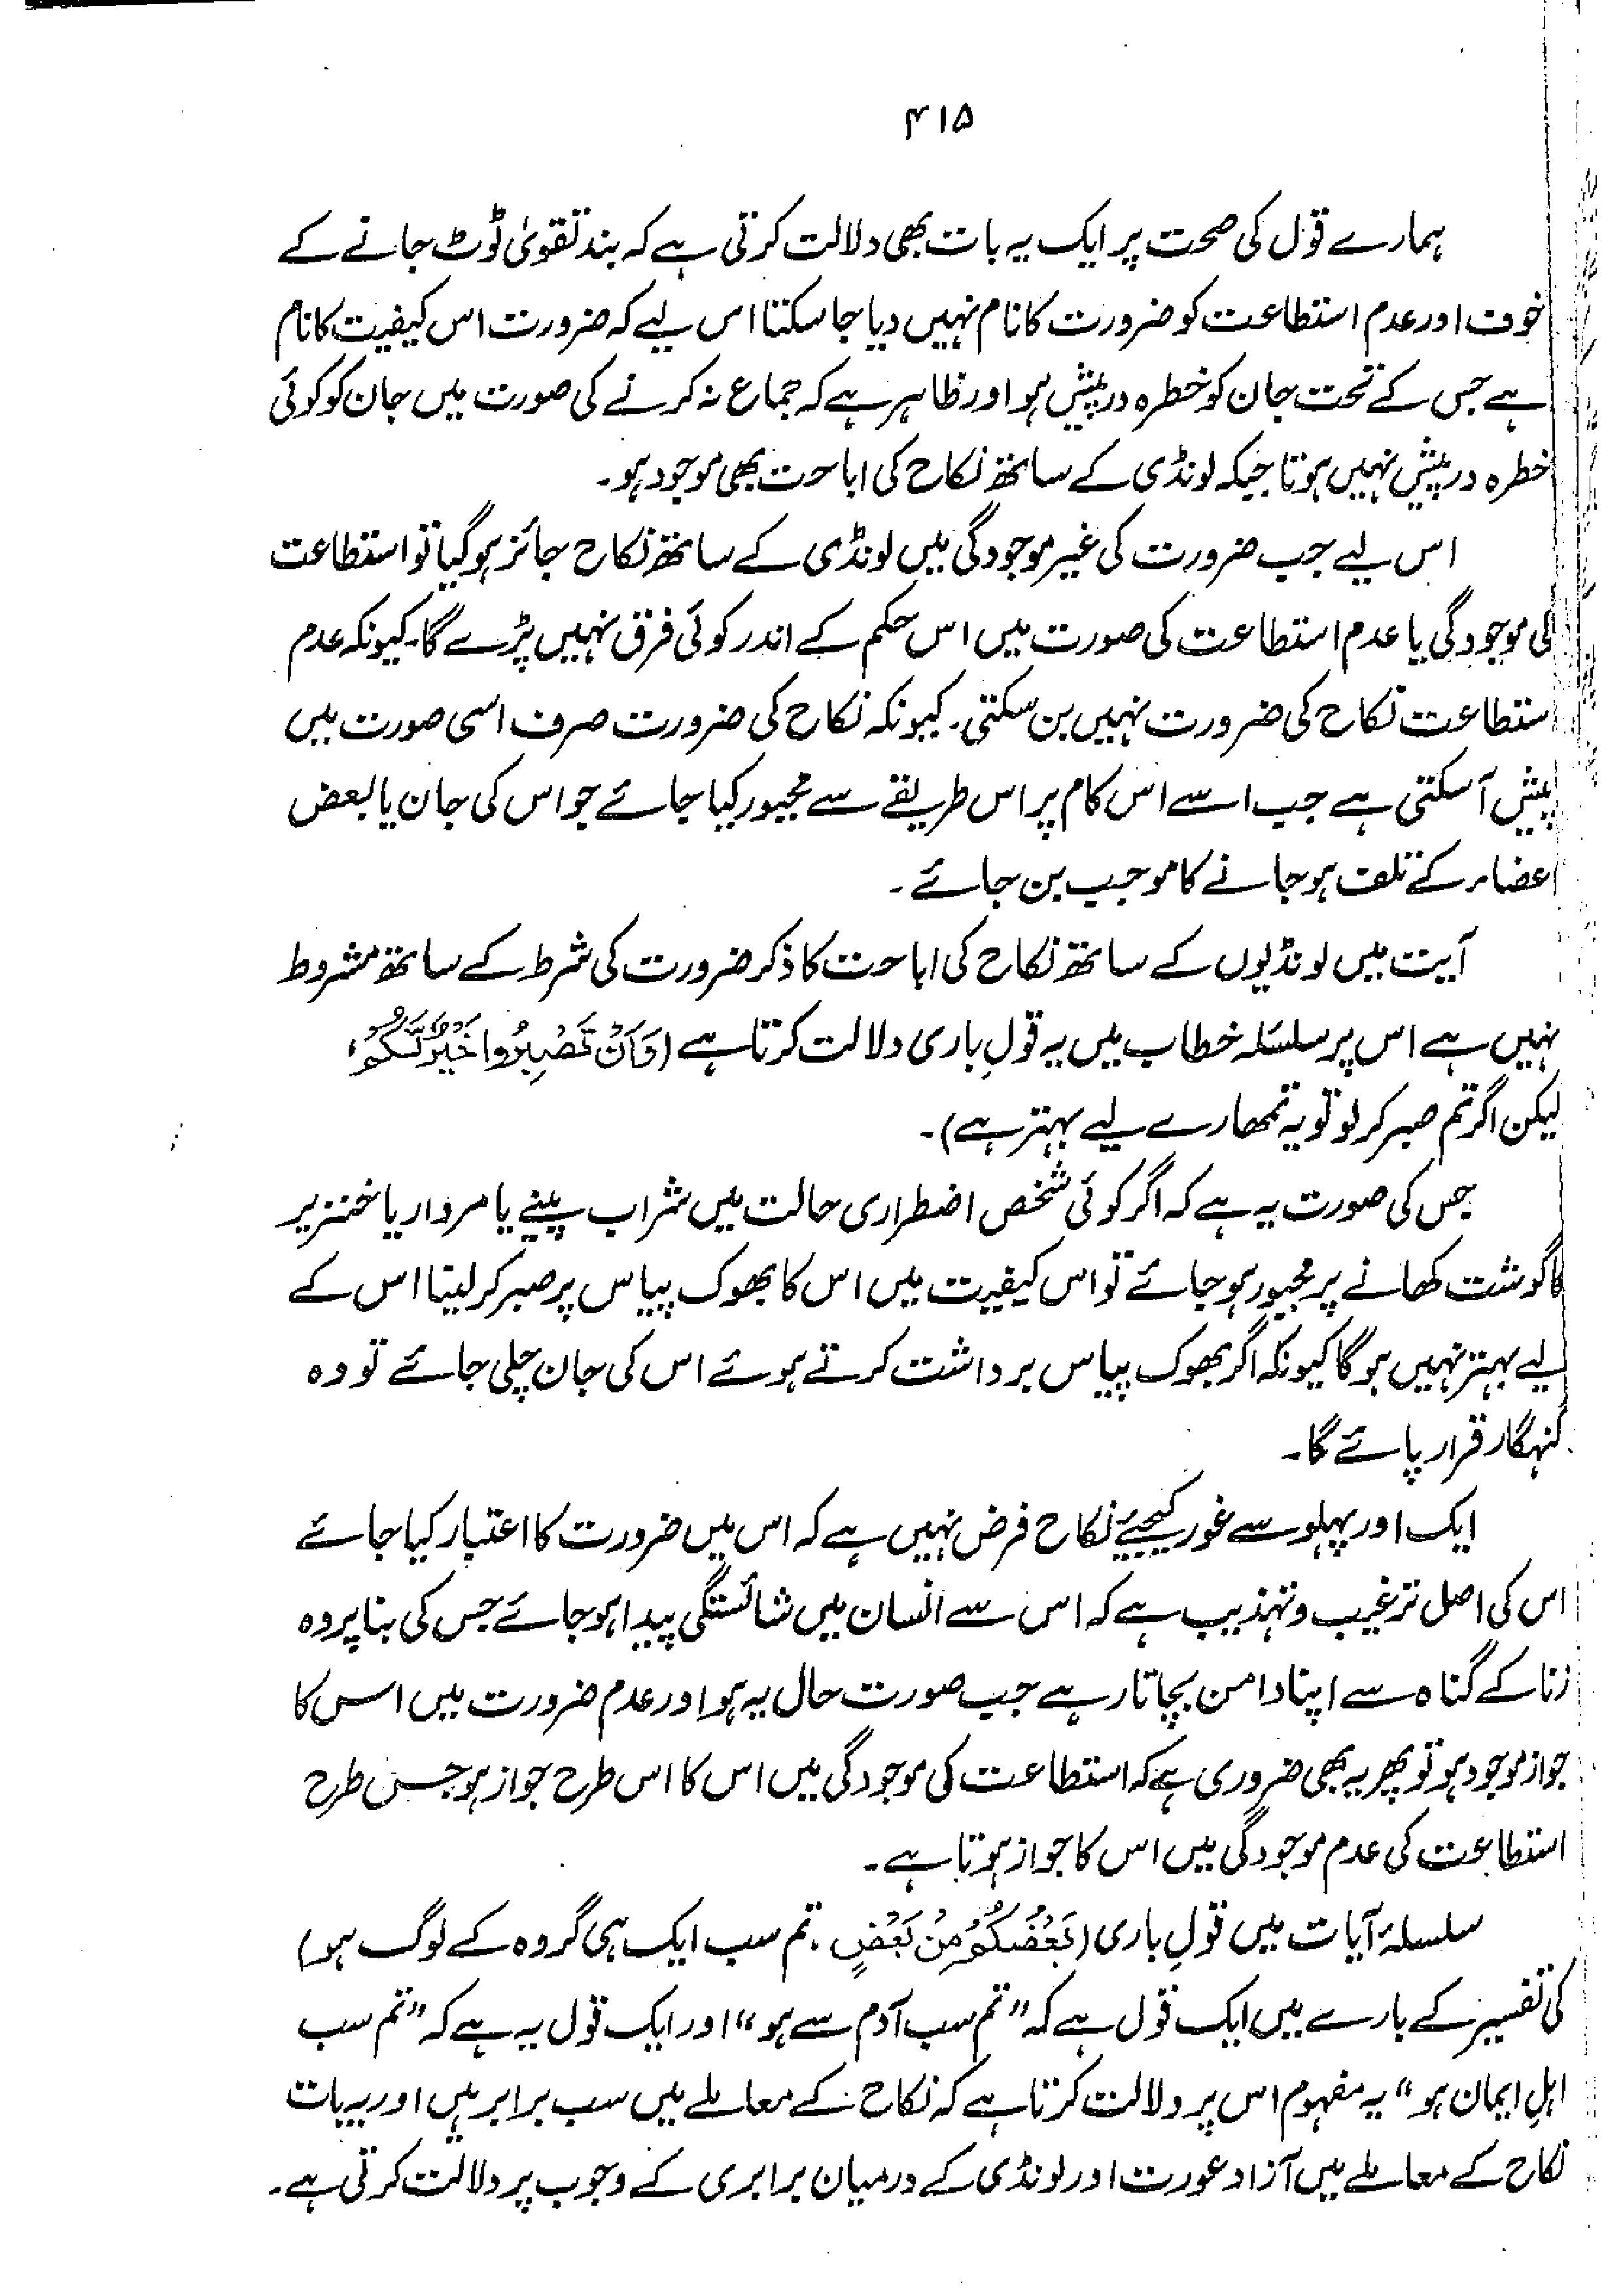 ۴۱۵
ہمارے قول کی صحت پر ایک یہ بات بھی دلالت کرتی ہے کہ بند تقویٰ ٹوٹ جانے کے
خوف اور عدم استطاعت کو ضرورت کا نام نہیں دیا جا سکتا اس لیے کہ ضرورت اس کیفیت کا نام
ہے جس کے تحت جان کو خطرہ درپیش ہو اور ظاہر ہے کہ جماع نہ کرنے کی صورت میں جان کو کوئی
خطرہ درپیش نہیں ہوتا جبکہ لونڈی کے ساتھ نکاح کی اباحت بھی موجود ہو۔
اس لیے جب ضرورت کی غیر موجودگی میں لونڈی کے ساتھ نکاح جائز ہو گیا تو استطاعت
کی موجودگی یا عدم استطاعت کی صورت میں اس حکم کے اندر کوئی فرق نہیں پڑے گا۔ کیونکہ عدم
استطاعت نکاح کی ضرورت نہیں بن سکتی۔ کیونکہ نکاح کی ضرورت صرف اسی صورت میں
پیش آسکتی ہے جب اسے اس کام پر اس طریقے سے مجبور کیا جائے جو اس کی جان یا بعض
اعضاء کے تلف ہو جانے کا موجب بن جائے۔
آیت میں لونڈیوں کے ساتھ نکاح کی اباحت کا ذکر ضرورت کی شرط کے ساتھ مشروط
نہیں ہے اس پر سلسلہ خطاب میں یہ قولِ باری دلالت کرتا ہے (وَاَنْ تَصْبِرُوا خَيْرٌ لَّكُمْ،
لیکن اگر تم صبر کر لو تو یہ تمھارے لیے بہتر ہے)۔
جس کی صورت یہ ہے کہ اگر کوئی شخص اضطراری حالت میں شراب پینے یا مردار یا خنزیر
کا گوشت کھانے پر مجبور ہو جائے تو اس کیفیت میں اس کا بھوک پیاس پر صبر کر لینا اس کے
لیے بہتر نہیں ہو گا کیونکہ اگر بھوک پیاس برداشت کرتے ہوئے اس کی جان چلی جائے تو وہ
گنہگار قرار پائے گا۔
ایک اور پہلو سے غور کیجیے نکاح فرض نہیں ہے کہ اس میں ضرورت کا اعتبار کیا جائے
اس کی اصل ترغیب و تہذیب ہے کہ اس سے انسان میں شائستگی پیدا ہو جائے جس کی بنا پر وہ
زنا کے گناہ سے اپنا دامن بچاتا رہے جب صورت حال یہ ہو اور عدم ضرورت میں اس کا
جواز موجود ہو تو پھر یہ بھی ضروری ہے کہ استطاعت کی موجودگی میں اس کا اس طرح جواز ہو جس طرح
استطاعت کی عدم موجودگی میں اس کا جواز ہوتا ہے۔
سلسلۂ آیات میں قولِ باری (بَعْضُكُمْ مِنْ بَعْضٍ، تم سب ایک ہی گروہ کے لوگ ہو)
کی تفسیر کے بارے میں ایک قول ہے کہ "تم سب آدم سے ہو" اور ایک قول یہ ہے کہ "تم سب
اہلِ ایمان ہو" یہ مفہوم اس پر دلالت کرتا ہے کہ نکاح کے معاملے میں سب برابر ہیں اور یہ بات
نکاح کے معاملے میں آزاد عورت اور لونڈی کے درمیان برابری کے وجوب پر دلالت کرتی ہے۔